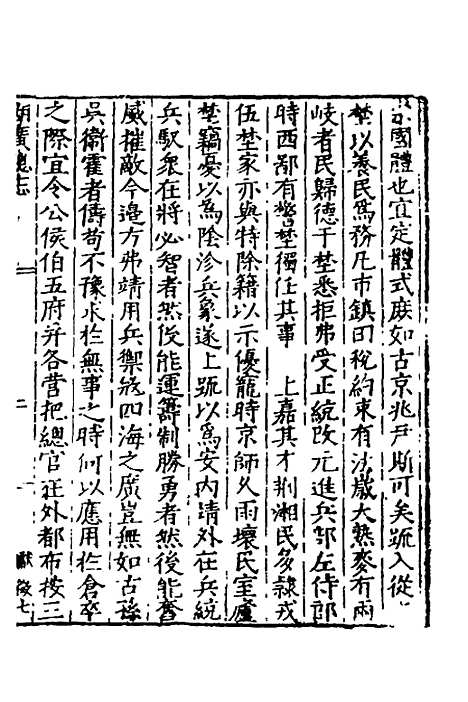 國體也宜定體式庶如古京兆尹斯可矣疏入從
埜以養民爲務凡市鎮田稅約束有法歲大熟麥有兩
岐者民歸德于埜悉拒弗受正統改元進兵部左侍郎
時西鄙有警埜獨任其事 上嘉其才荆湘民多隸戎
伍埜家亦與特除籍以示優寵時京師久雨壞民室廬
埜竊憂以爲陰沴兵象遂上疏以爲安內靖外在兵統
兵馭衆在將必智者然後能運籌制勝勇者然後能奮
威摧敵今邉方弗靖用兵禦寇四海之廣豈無如古孫
吳衞霍者儔苟不豫求於無事之時何以應用於倉卒
之際宜令公侯伯五府并各營把總官在外都布按三
湖廣總志 二 獻後七